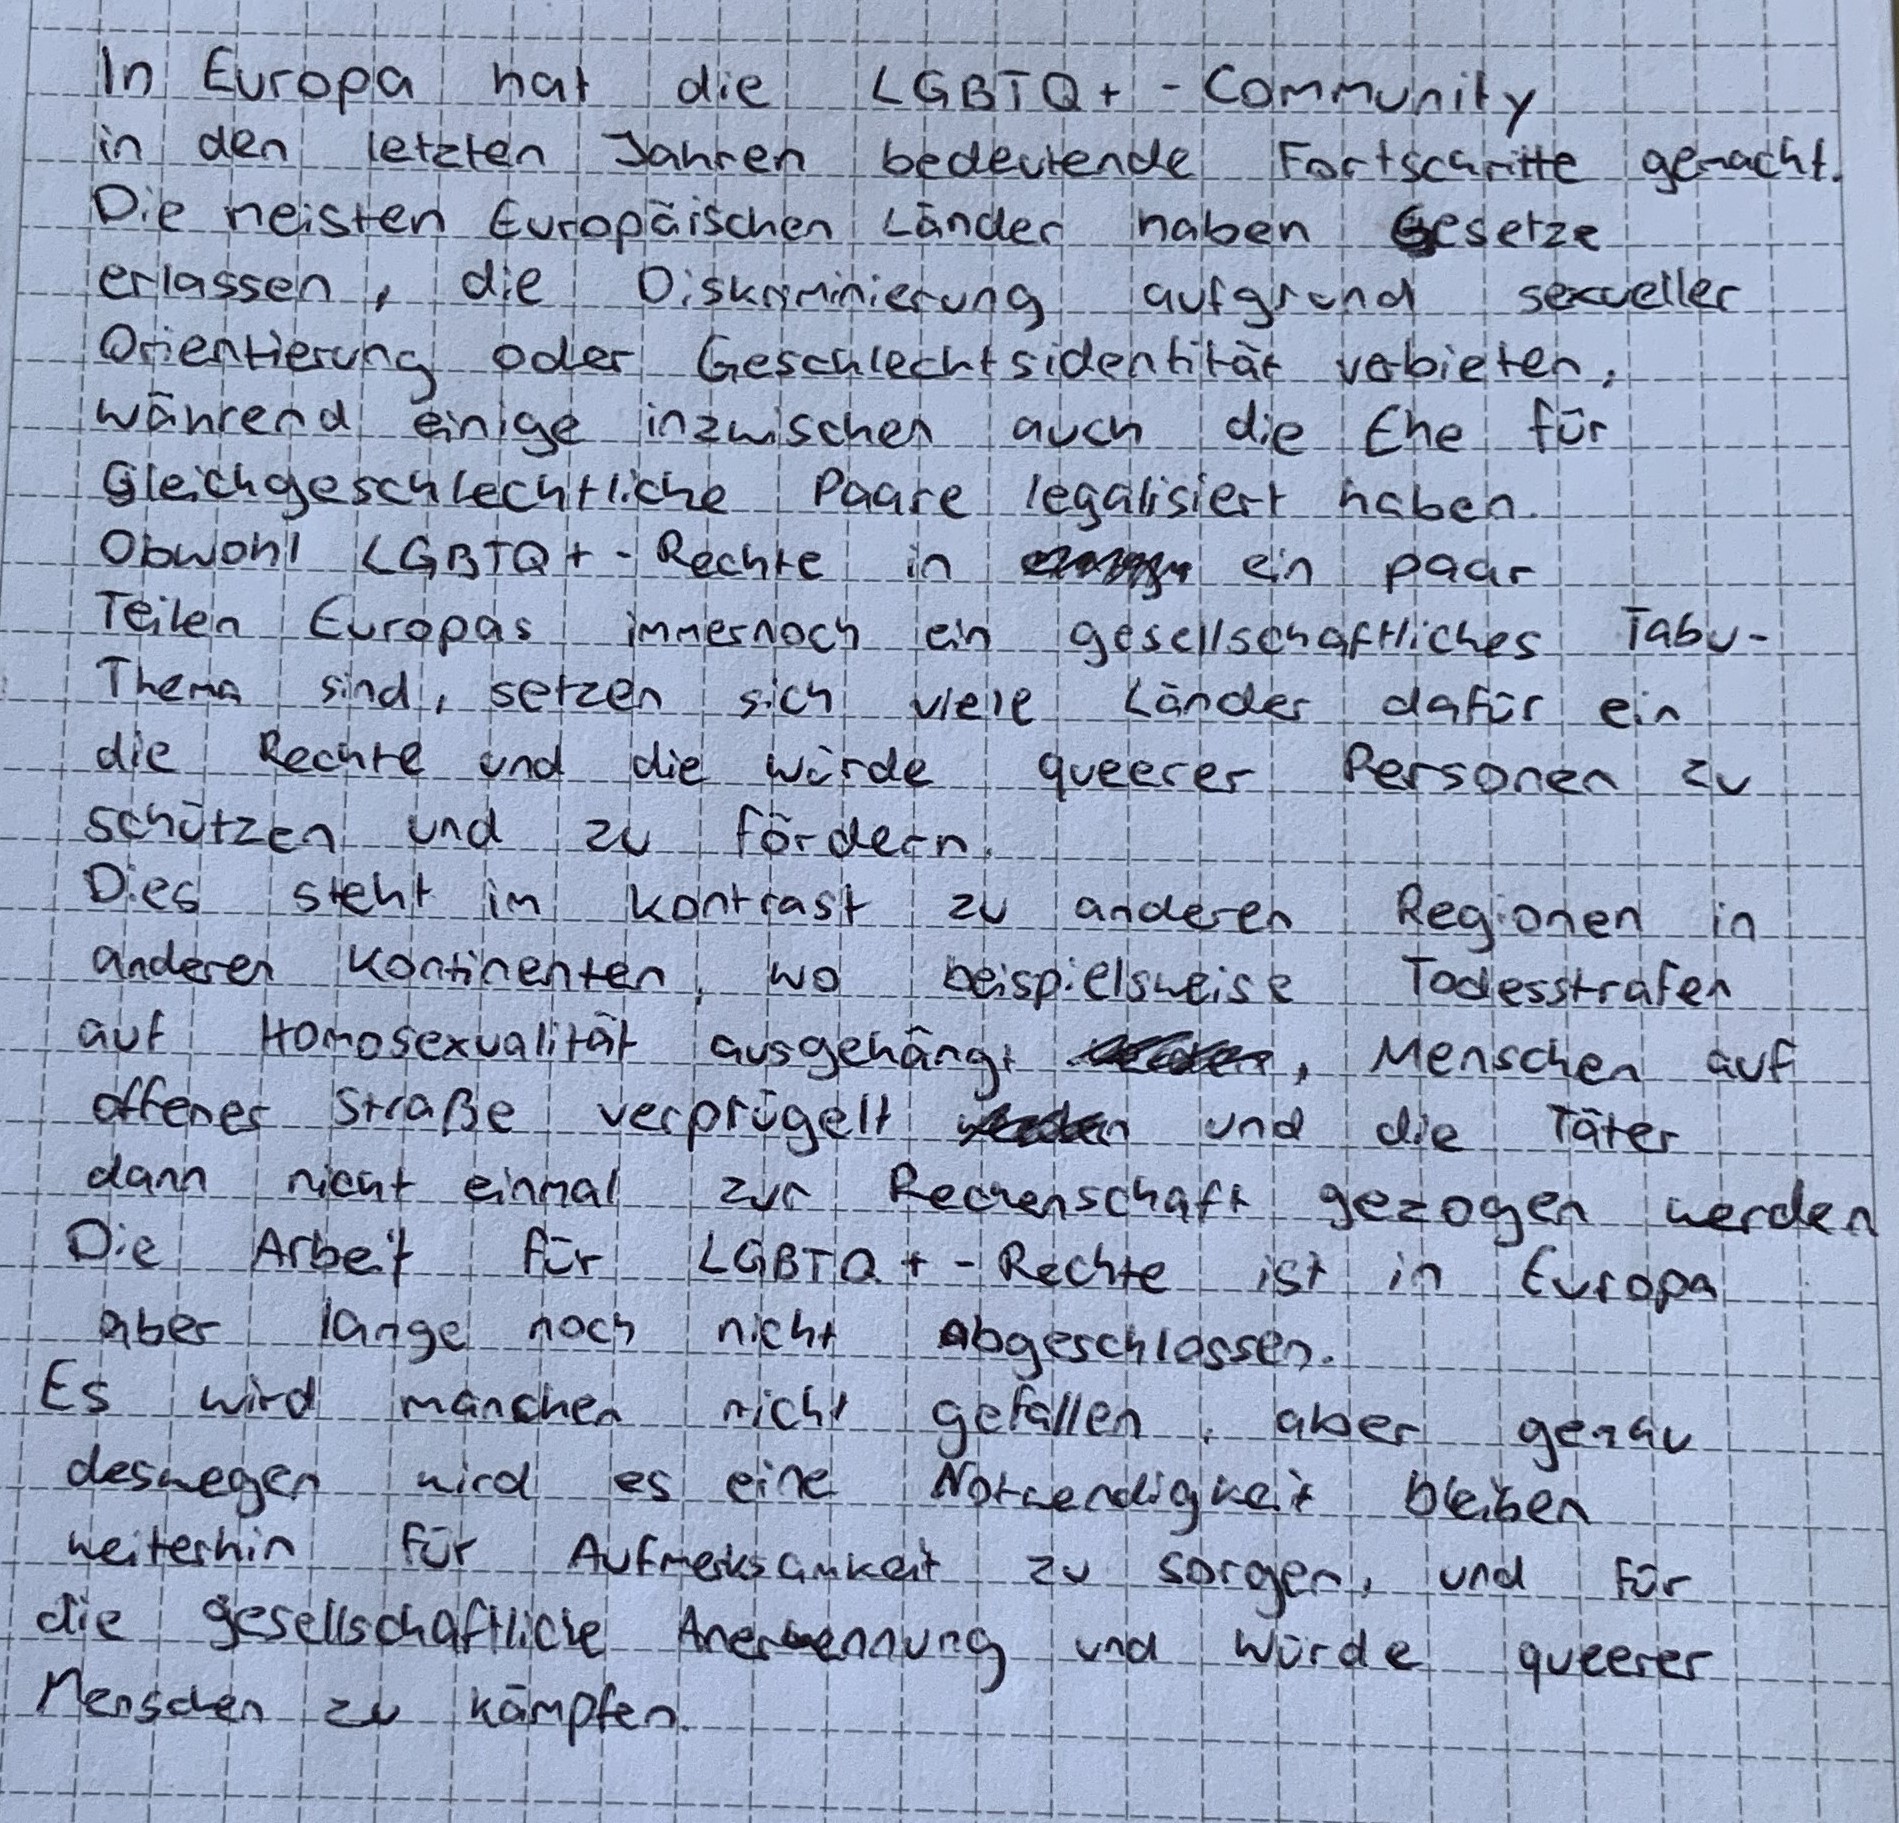 In Europa hat die LGBTQ+-Community
in den letzten Jahren bedeutende Fortschritte gemacht.
Die meisten Europäischen Länder haben Gesetze
erlassen, die Diskriminierung aufgrund sexueller
Orientierung oder Geschlechtsidentität verbieten,
während einige inzwischen auch die Ehe für
Gleichgeschlechtliche Paare legalisiert haben.
Obwohl LGBTQ+-Rechte in ein paar
Teilen Europas immernoch ein gesellschaftliches Tabu-
Thema sind, setzen sich viele Länder dafür ein
die Rechte und die würde queerer Personen zu
schützen und zu fördern.
Dies steht im kontrast zu anderen Regionen in
anderen Kontinenten, wo beispielsweise Todesstrafen
auf Homosexualität ausgehängt, Menschen auf
offener Straße verprügelt und die Täter
dann nicht einmal zur Rechenschaft gezogen werden
Die Arbeit für LGBTQ+-Rechte ist in Europa
aber lange noch nicht abgeschlossen.
Es wird manchen nicht gefallen, aber genau
deswegen wird es eine Notwendigkeit bleiben
weiterhin für Aufmerksamkeit zu sorgen, und für
die gesellschaftliche Anerkennung und Würde queerer
Menschen zu kämpfen.